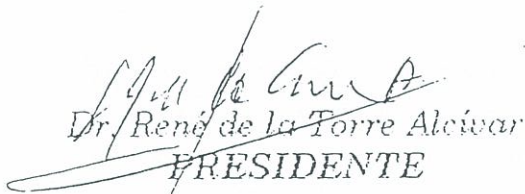 Dr. René de la Torre Alcívar
PRESIDENTE